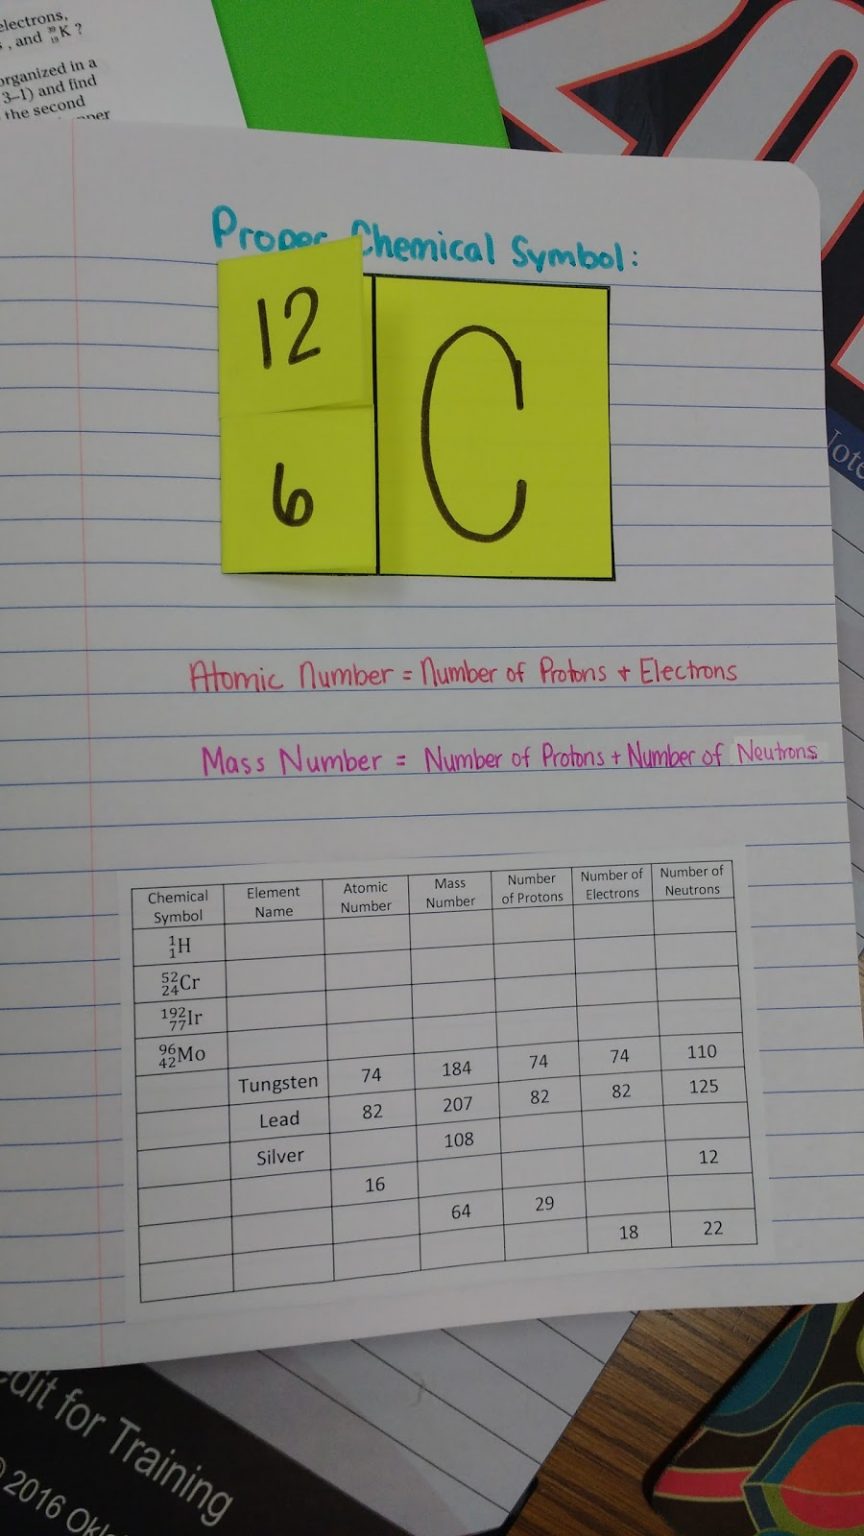 electrons,
, and ³⁹₁₉K ?
organized in a
3–1) and find
the second
Proper Chemical Symbol:
12
6
C
Atomic Number = Number of Protons + Electrons
Mass Number = Number of Protons + Number of Neutrons
Chemical Symbol Element Name Atomic Number Mass Number Number of Protons Number of Electrons Number of Neutrons
¹₁H
⁵²₂₄Cr
¹⁹²₇₇Ir
⁹⁶₄₂Mo
Tungsten 74 184 74 74 110
Lead 82 207 82 82 125
Silver 108
16 12
64 29
18 22
edit for Training
© 2016